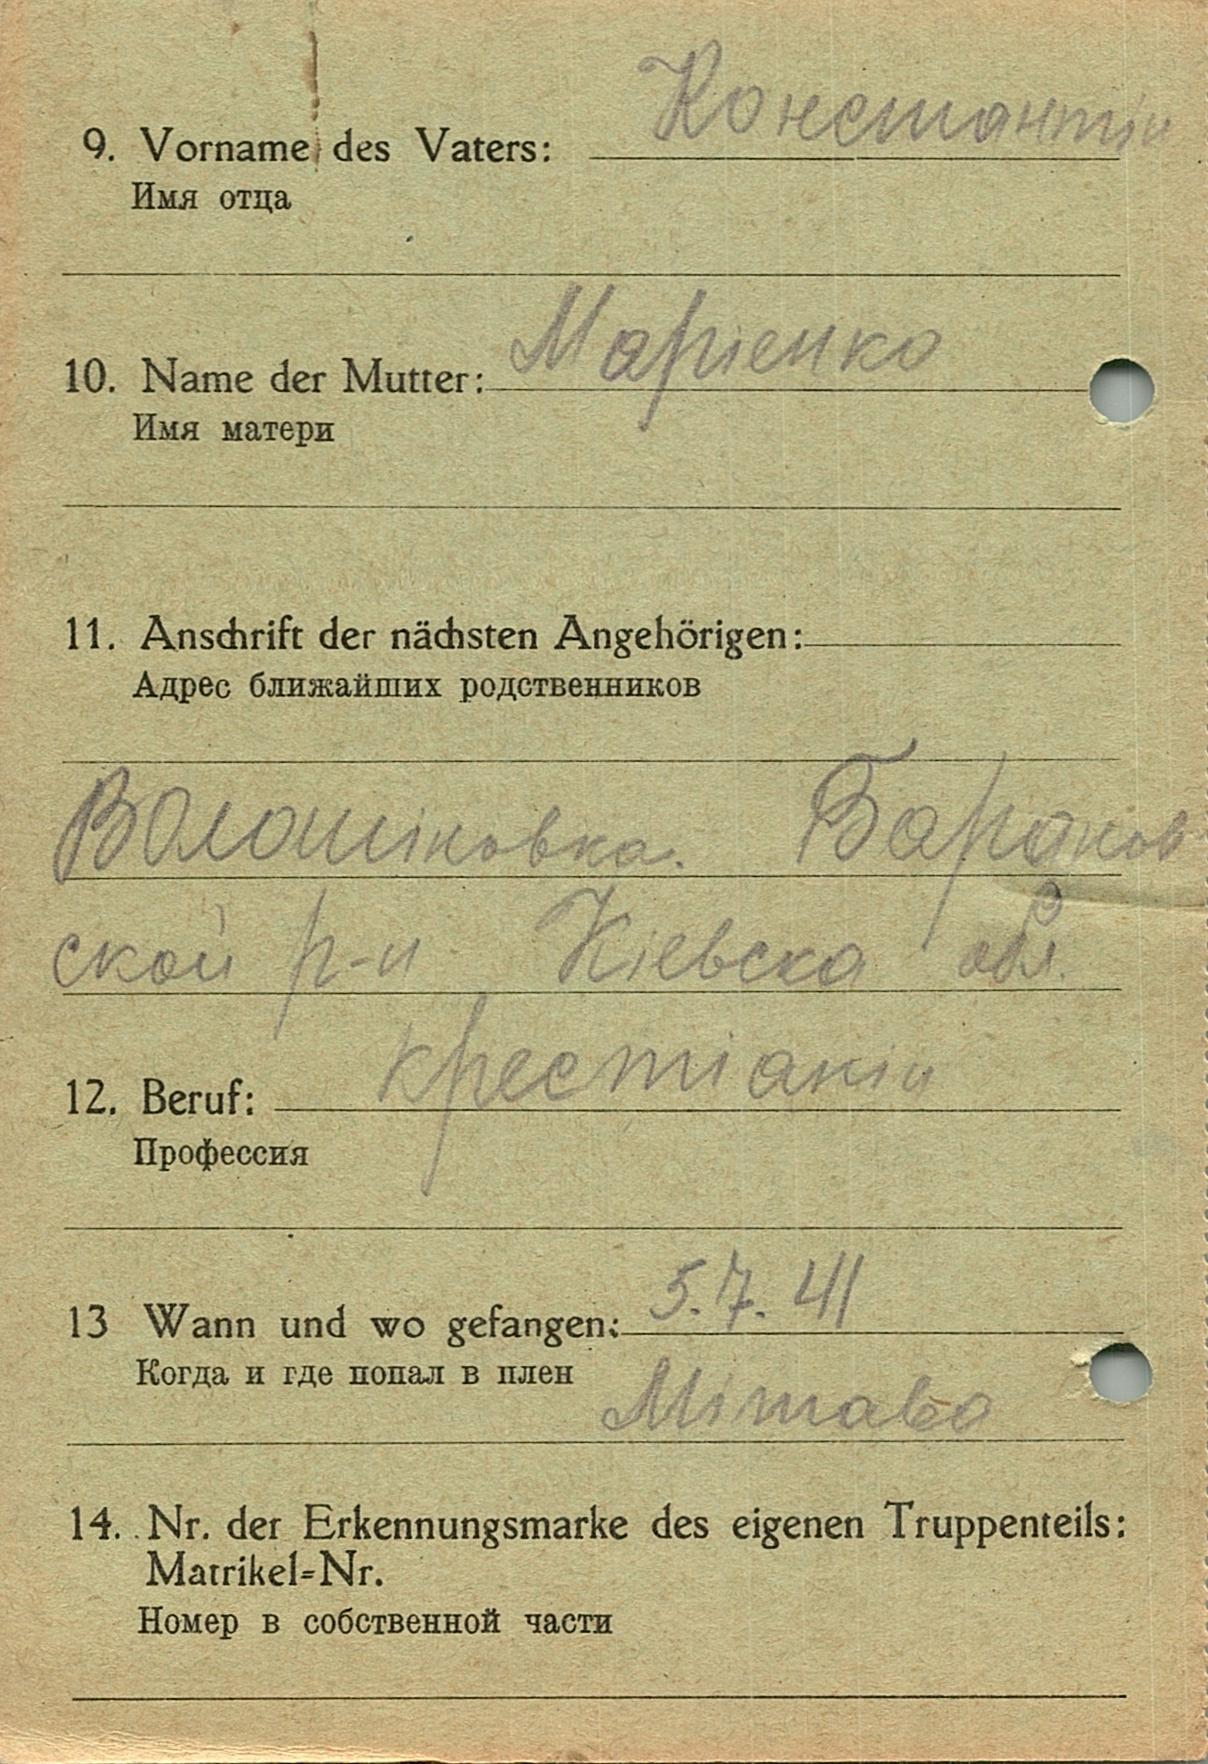 Константін
9. Vorname des Vaters:
Имя отца
Маріенко
10. Name der Mutter:
Имя матери
11. Anschrift der nächsten Angehörigen:
Адрес ближайших родственников
Волошіновка. Баранов
ской р-н Кіевска обл.
крестіанін
12. Beruf:
Профессия
13 Wann und wo gefangen: 5.7.41
Когда и где попал в плен Мітава
14. Nr. der Erkennungsmarke des eigenen Truppenteils:
Matrikel=Nr.
Номер в собственной части